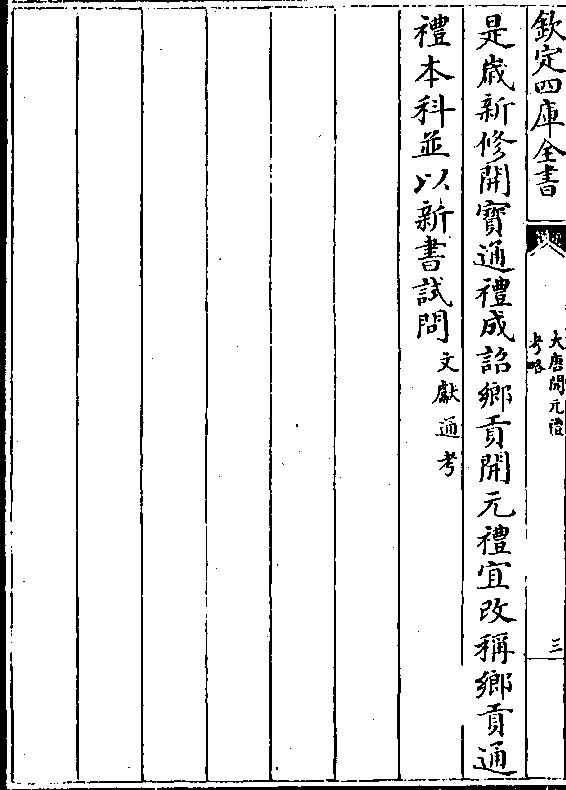 欽定四庫全書
大唐開元禮
考略
三
是歳新修開寳通禮成詔鄉貢開元禮宜改稱鄉貢通
禮本科並以新書試問
文獻通考